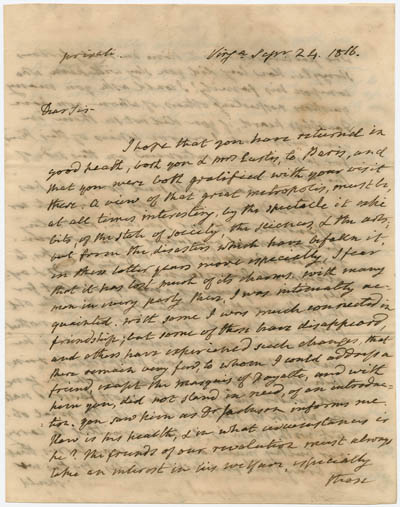 private.
Virga Sepr 24. 1816.
Dear Sir
I hope that you have returned in
good health, both you & Mrs Eustis, to Paris, and
that you were both gratified with your visit
there. A view of that great metropolis, must be,
at all times interesting, by the spectacle it exhi
bits, of the state of society, the sciences, & the arts;
but from the disasters which have befallen it,
in these latter years more especially, I fear
that it has lost much of its charms. With many
men in every party there, I was intimately ac-
quainted. with some I was much connected in
friendship; but some of those have disappeard,
and others have experienced such changes, that
there remain very few to whom I could address a
friend except the marquis of Fayette, and with
him you, did not stand in need, of an introduc-
tion. you saw him as Dr Jackson informs me.
How is his health, & in what circumstances is
he? The friends of our revolution must always
take an interest in his welfare, especially
those